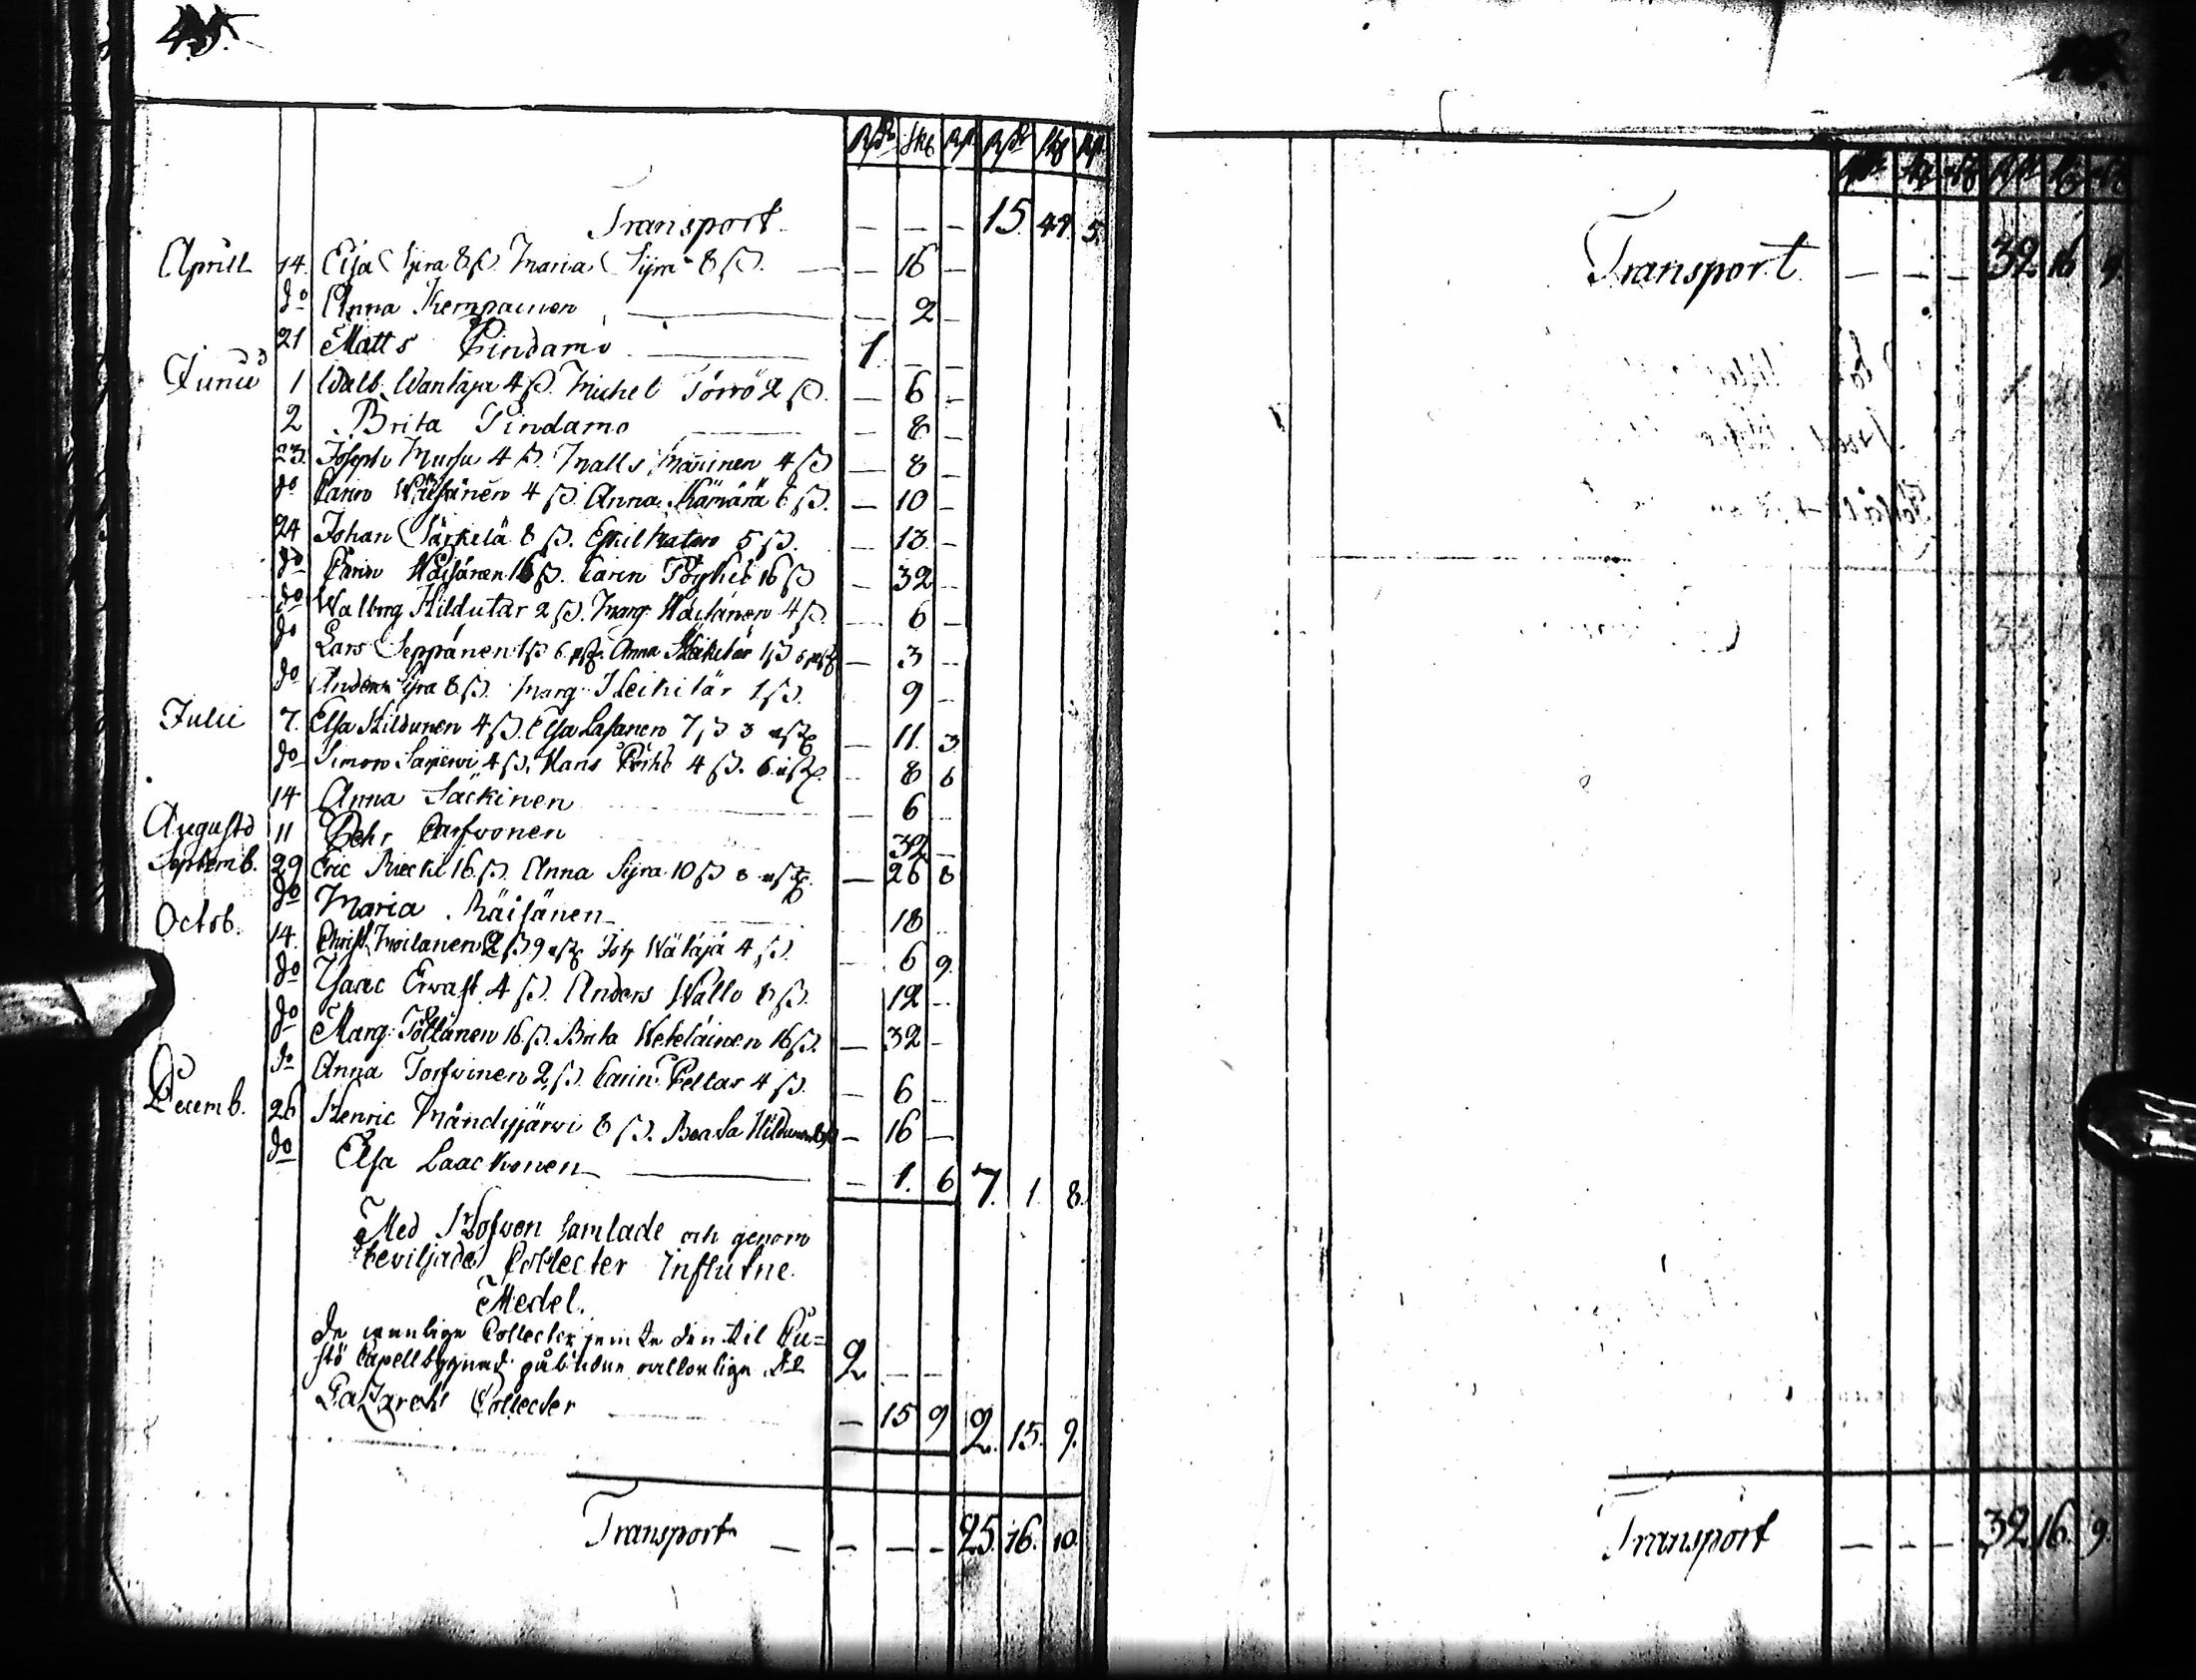 Rsdr Sk Rst Rsdr Sk Rst
Transport — — — 15. 47. 5.
Aprill 14. Elsa Syra 8 ß. Maria Syra 8 ß. — 16 —
do Anna Kempainen — 2 —
21 Matts Pindamo 1. — —
Junii 1 Walb. Wantaja 4 ß. Michel Törrö 2 ß. — 6 —
2 Brita Pindamo — 8 —
23. Joseph Mursu 4 ß. Matts Manninen 4 ß — 8 —
do Carin Wäisänen 4 ß. Anna Kämärä 6 ß. — 10 —
24 Johan Särkelä 8 ß. 5 ß. — 13 —
do Carin Wäisänen 16 ß. Carin 16 ß — 32 —
do Walborg Hildutar 2 ß. Marg. Wäisänen 4 ß. — 6 —
do Lars Seppänen 1 ß 6 rst. Anna Heikitär 1 ß 6 rst — 3 —
do Anders Syra 8 ß. Marg. Heikitär 1 ß. 9 —
Julii 7. Elsa Hildunen 4 ß. Elsa Lasanen 7 ß 3 rst — 11. 3
do Simon 4 ß. Hans 4 ß. 6 rst. — 8 6
14 Anna Säckinen — 6 —
Augusti 11 Pehr Carfvonen 32 —
Septemb. 29 Eric Riecki 16 ß. Anna Syra 10 ß 8 rst. — 26 8
do Maria Räisänen 18 —
Octob. 14. Christ. Moilanen 2 ß 9 rst. Joh. Wätäjä 4 ß. — 6 9.
do Isaac Erwast 4 ß. Anders Wallo 8 ß. 12 —
do Marg. Pöllänen 16 ß. Brita Weteläinen 16 ß. — 32 —
do Anna Torfvinen 2 ß. Carin Peltar 4 ß. — 6 —
Decemb. 26 Henric Måndyjärwi 8 ß. Beata Hildunen 8 ß — 16 —
do Elsa Laackonen — 1. 6 7. 1. 8.
Med Håfwen samlade och genom
beviljade Collecter Influtne
Medel.
De wanlige Collecter jemte den til Cu=
stö Capellbygnad påbudne 2. — —
Lazarets Collecter — 15 9 2. 15. 9.
Transport — — — — 25. 16. 10.
Transport — — — 32. 16. 9.
Transport — — — 32. 16. 9.